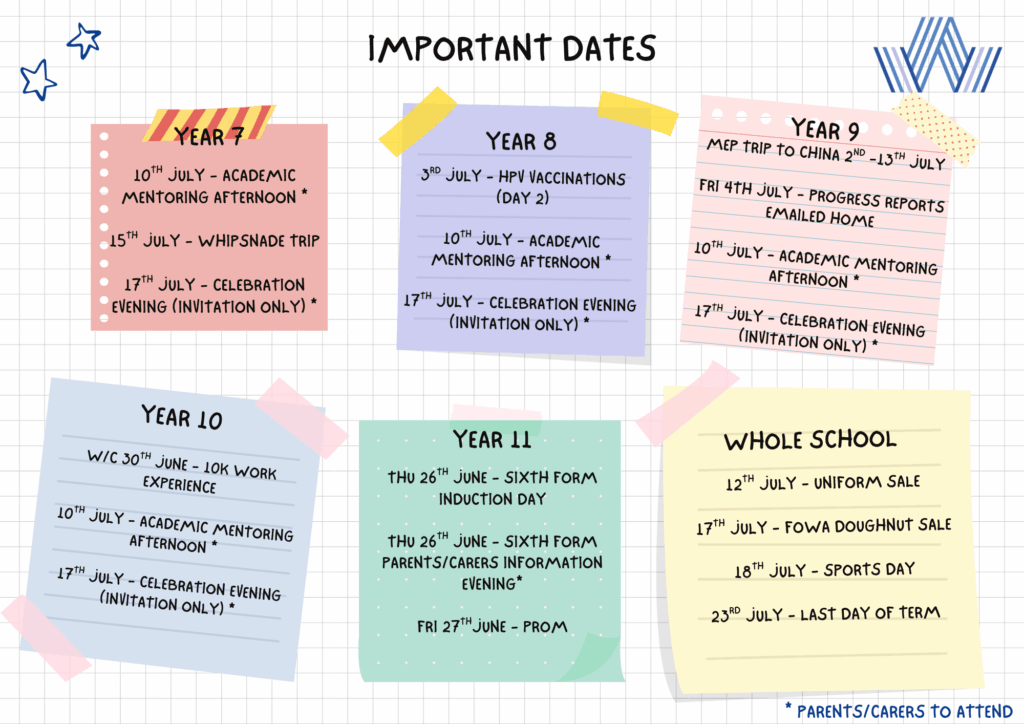 IMPORTANT DATES
YEAR 7
10TH JULY – ACADEMIC
MENTORING AFTERNOON *
15TH JULY – WHIPSNADE TRIP
17TH JULY – CELEBRATION
EVENING (INVITATION ONLY) *
YEAR 8
3RD JULY – HPV VACCINATIONS
(DAY 2)
10TH JULY – ACADEMIC
MENTORING AFTERNOON *
17TH JULY – CELEBRATION EVENING
(INVITATION ONLY) *
YEAR 9
MEP TRIP TO CHINA 2ND -13TH JULY
FRI 4TH JULY – PROGRESS REPORTS
EMAILED HOME
10TH JULY – ACADEMIC MENTORING
AFTERNOON *
17TH JULY – CELEBRATION EVENING
(INVITATION ONLY) *
YEAR 10
W/C 30TH JUNE – 10K WORK
EXPERIENCE
10TH JULY – ACADEMIC MENTORING
AFTERNOON *
17TH JULY – CELEBRATION EVENING
(INVITATION ONLY) *
YEAR 11
THU 26TH JUNE – SIXTH FORM
INDUCTION DAY
THU 26TH JUNE – SIXTH FORM
PARENTS/CARERS INFORMATION
EVENING*
FRI 27TH JUNE – PROM
WHOLE SCHOOL
12TH JULY – UNIFORM SALE
17TH JULY – FOWA DOUGHNUT SALE
18TH JULY – SPORTS DAY
23RD JULY – LAST DAY OF TERM
* PARENTS/CARERS TO ATTEND